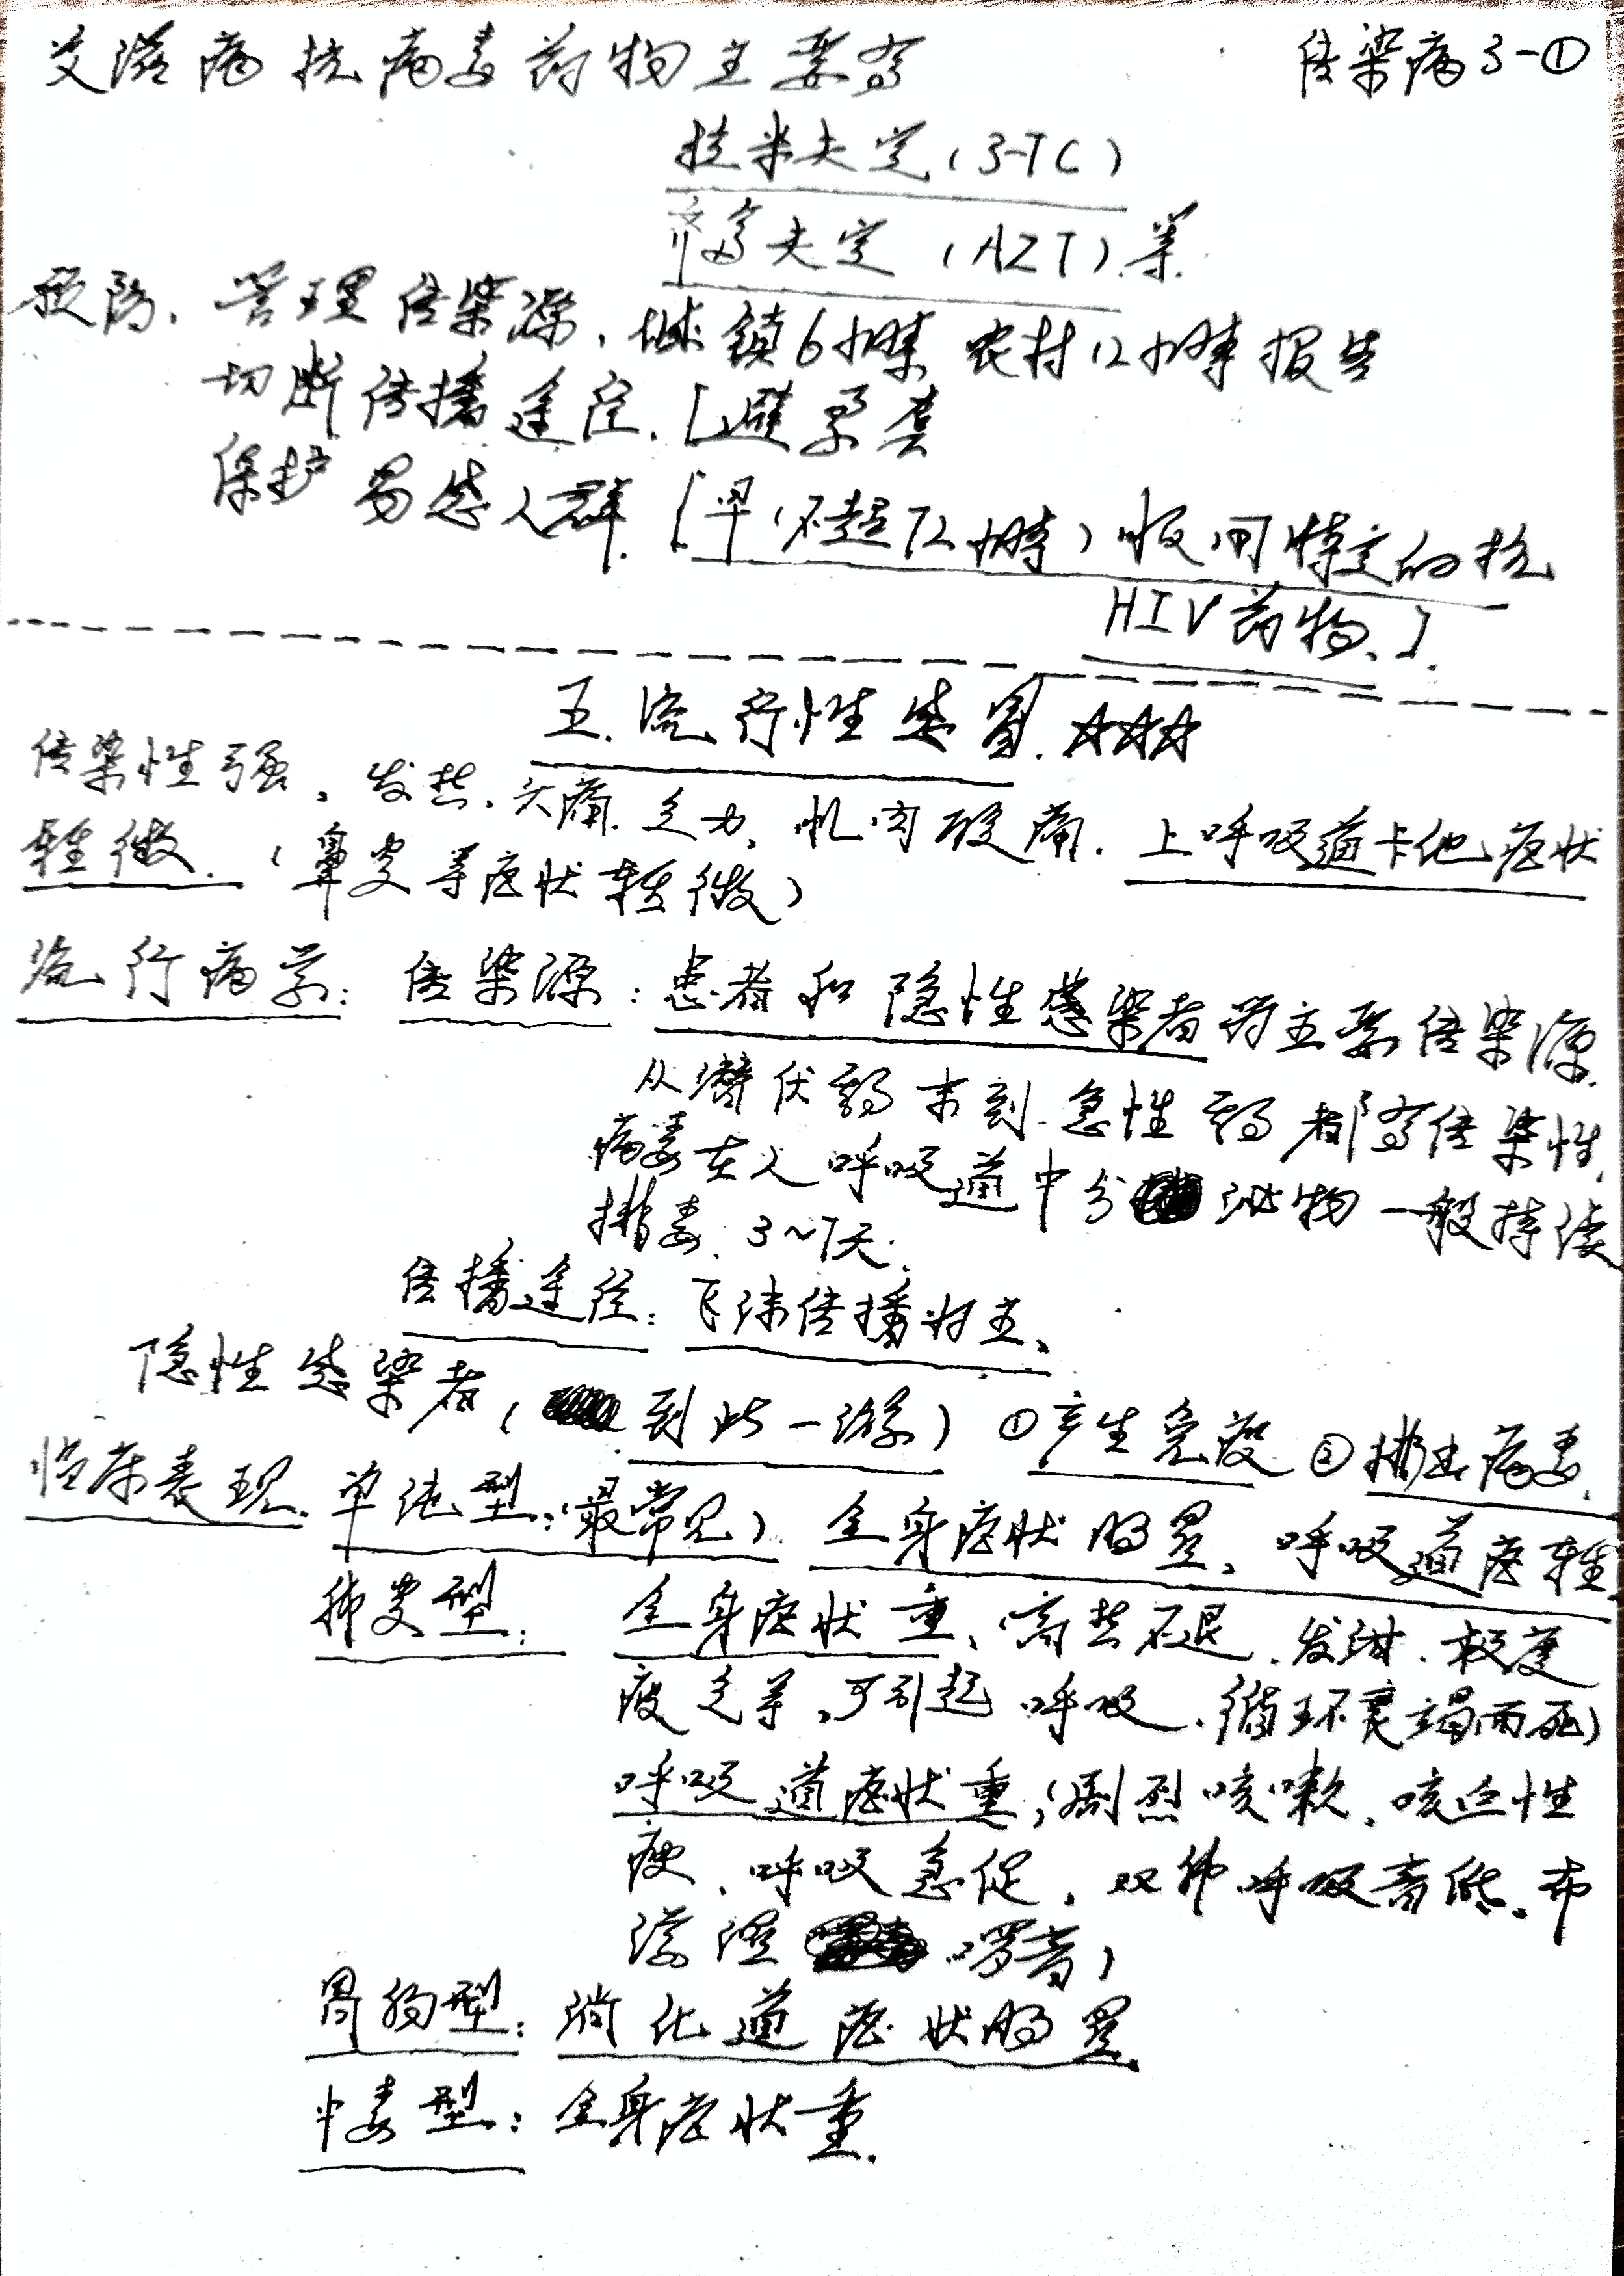 艾滋病抗病毒药物主要有
传染病3-①
拉米夫定(3-TC)
齐多夫定(AZT)等.
预防、管理传染源、城镇6小时 农村12小时报告
切断传播途径.[避孕套
保护易感人群.[早(不超72小时)服用特定的抗
HIV药物.].
五.流行性感冒.☆☆☆
传染性强。发热.头痛.乏力、肌肉酸痛.上呼吸道卡他症状
轻微.(鼻炎等症状轻微)
流行病学:传染源:患者和隐性感染者为主要传染源.
从潜伏期末到急性期都有传染性,
病毒在人呼吸道中分泌物一般持续
排毒.3~7天.
传播途径:飞沫传播为主、
隐性感染者(到此一游)①产生免疫②排出病毒.
临床表现.单纯型:(最常见).全身症状明显、呼吸道症轻.
肺炎型:全身症状重、(高热不退、发绀、极度
疲乏等,可引起呼吸、循环衰竭而死)
呼吸道症状重,(剧烈咳嗽、咳血性
痰、呼吸急促、双肺呼吸音低.布
满湿啰音)
胃肠型:消化道症状明显.
中毒型:全身症状重.